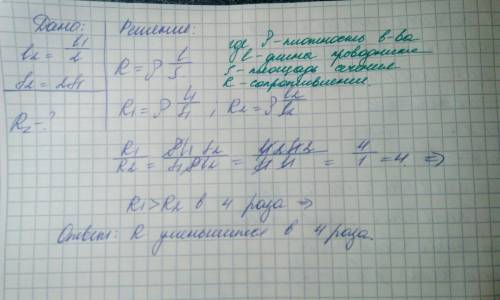 Дано:
l₂ = l₁/2
S₂ = 2S₁
R₂ - ?
Решение:
R = ρ l/S
где ρ - плотность в-ва
l - длина проводника
S - площадь сечения
R - сопротивление.
R₁ = ρ l₁/S₁ ; R₂ = ρ l₂/S₂
R₁/R₂ = ρl₁ S₂/S₁ρl₂ = = 4/1 = 4 ⇒
R₁ > R₂ в 4 раза ⇒
Ответ: R уменьшится в 4 раза.